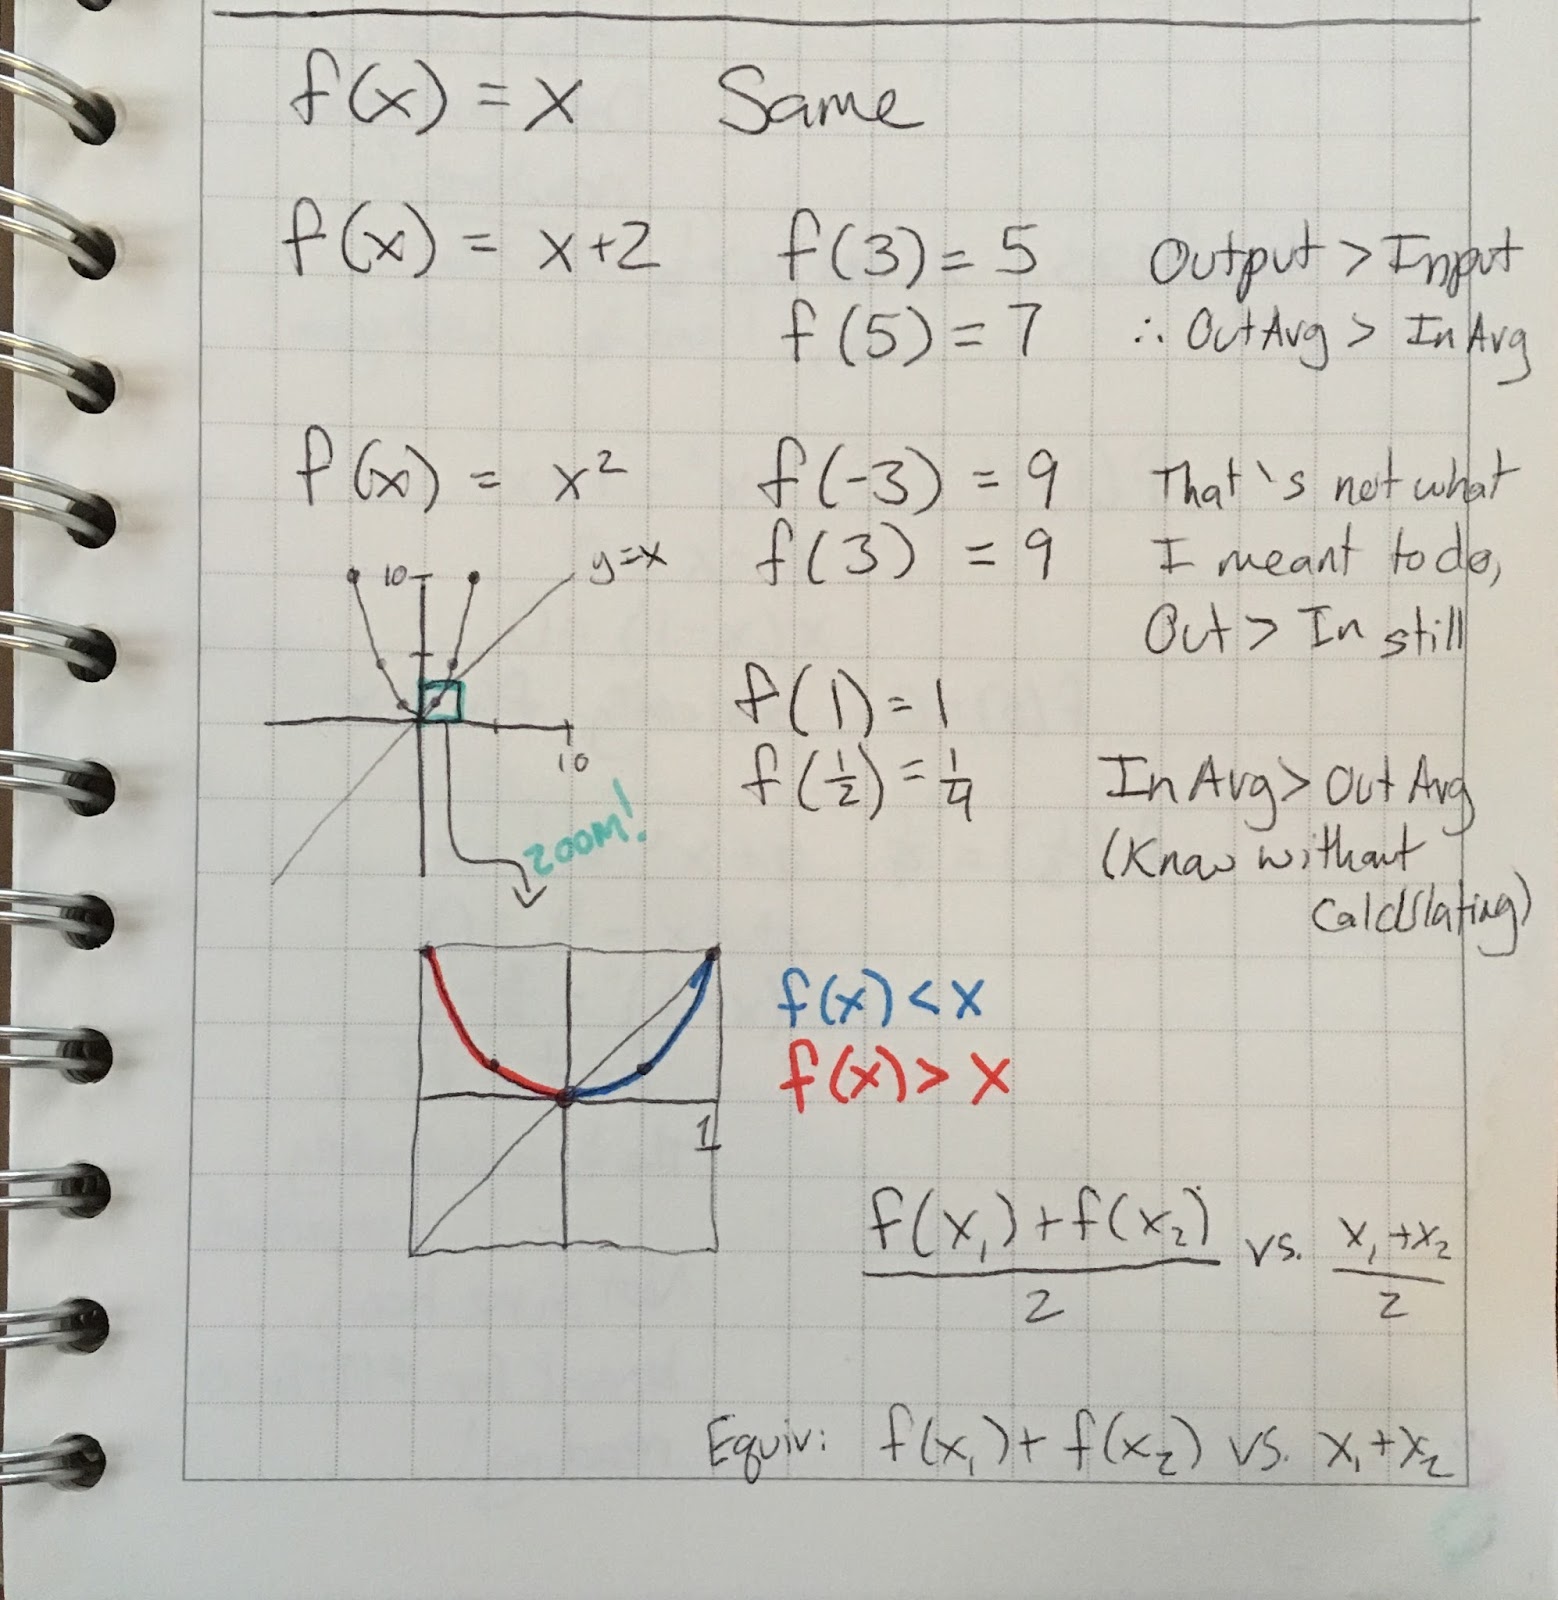 f(x) = x Same
f(x) = x+2 f(3) = 5 Output > Input
f(5) = 7 ∴ OutAvg > InAvg
f(x) = x² f(-3) = 9 That's not what
f(3) = 9 I meant to do,
Out > In still
y=x
10
10
f(1) = 1
f(1/2) = 1/4 InAvg > OutAvg
(Know without
Calculating)
ZOOM!
f(x) < x
f(x) > x
1
(f(x₁) + f(x₂))/2 vs. (x₁+x₂)/2
Equiv: f(x₁) + f(x₂) vs. x₁+x₂